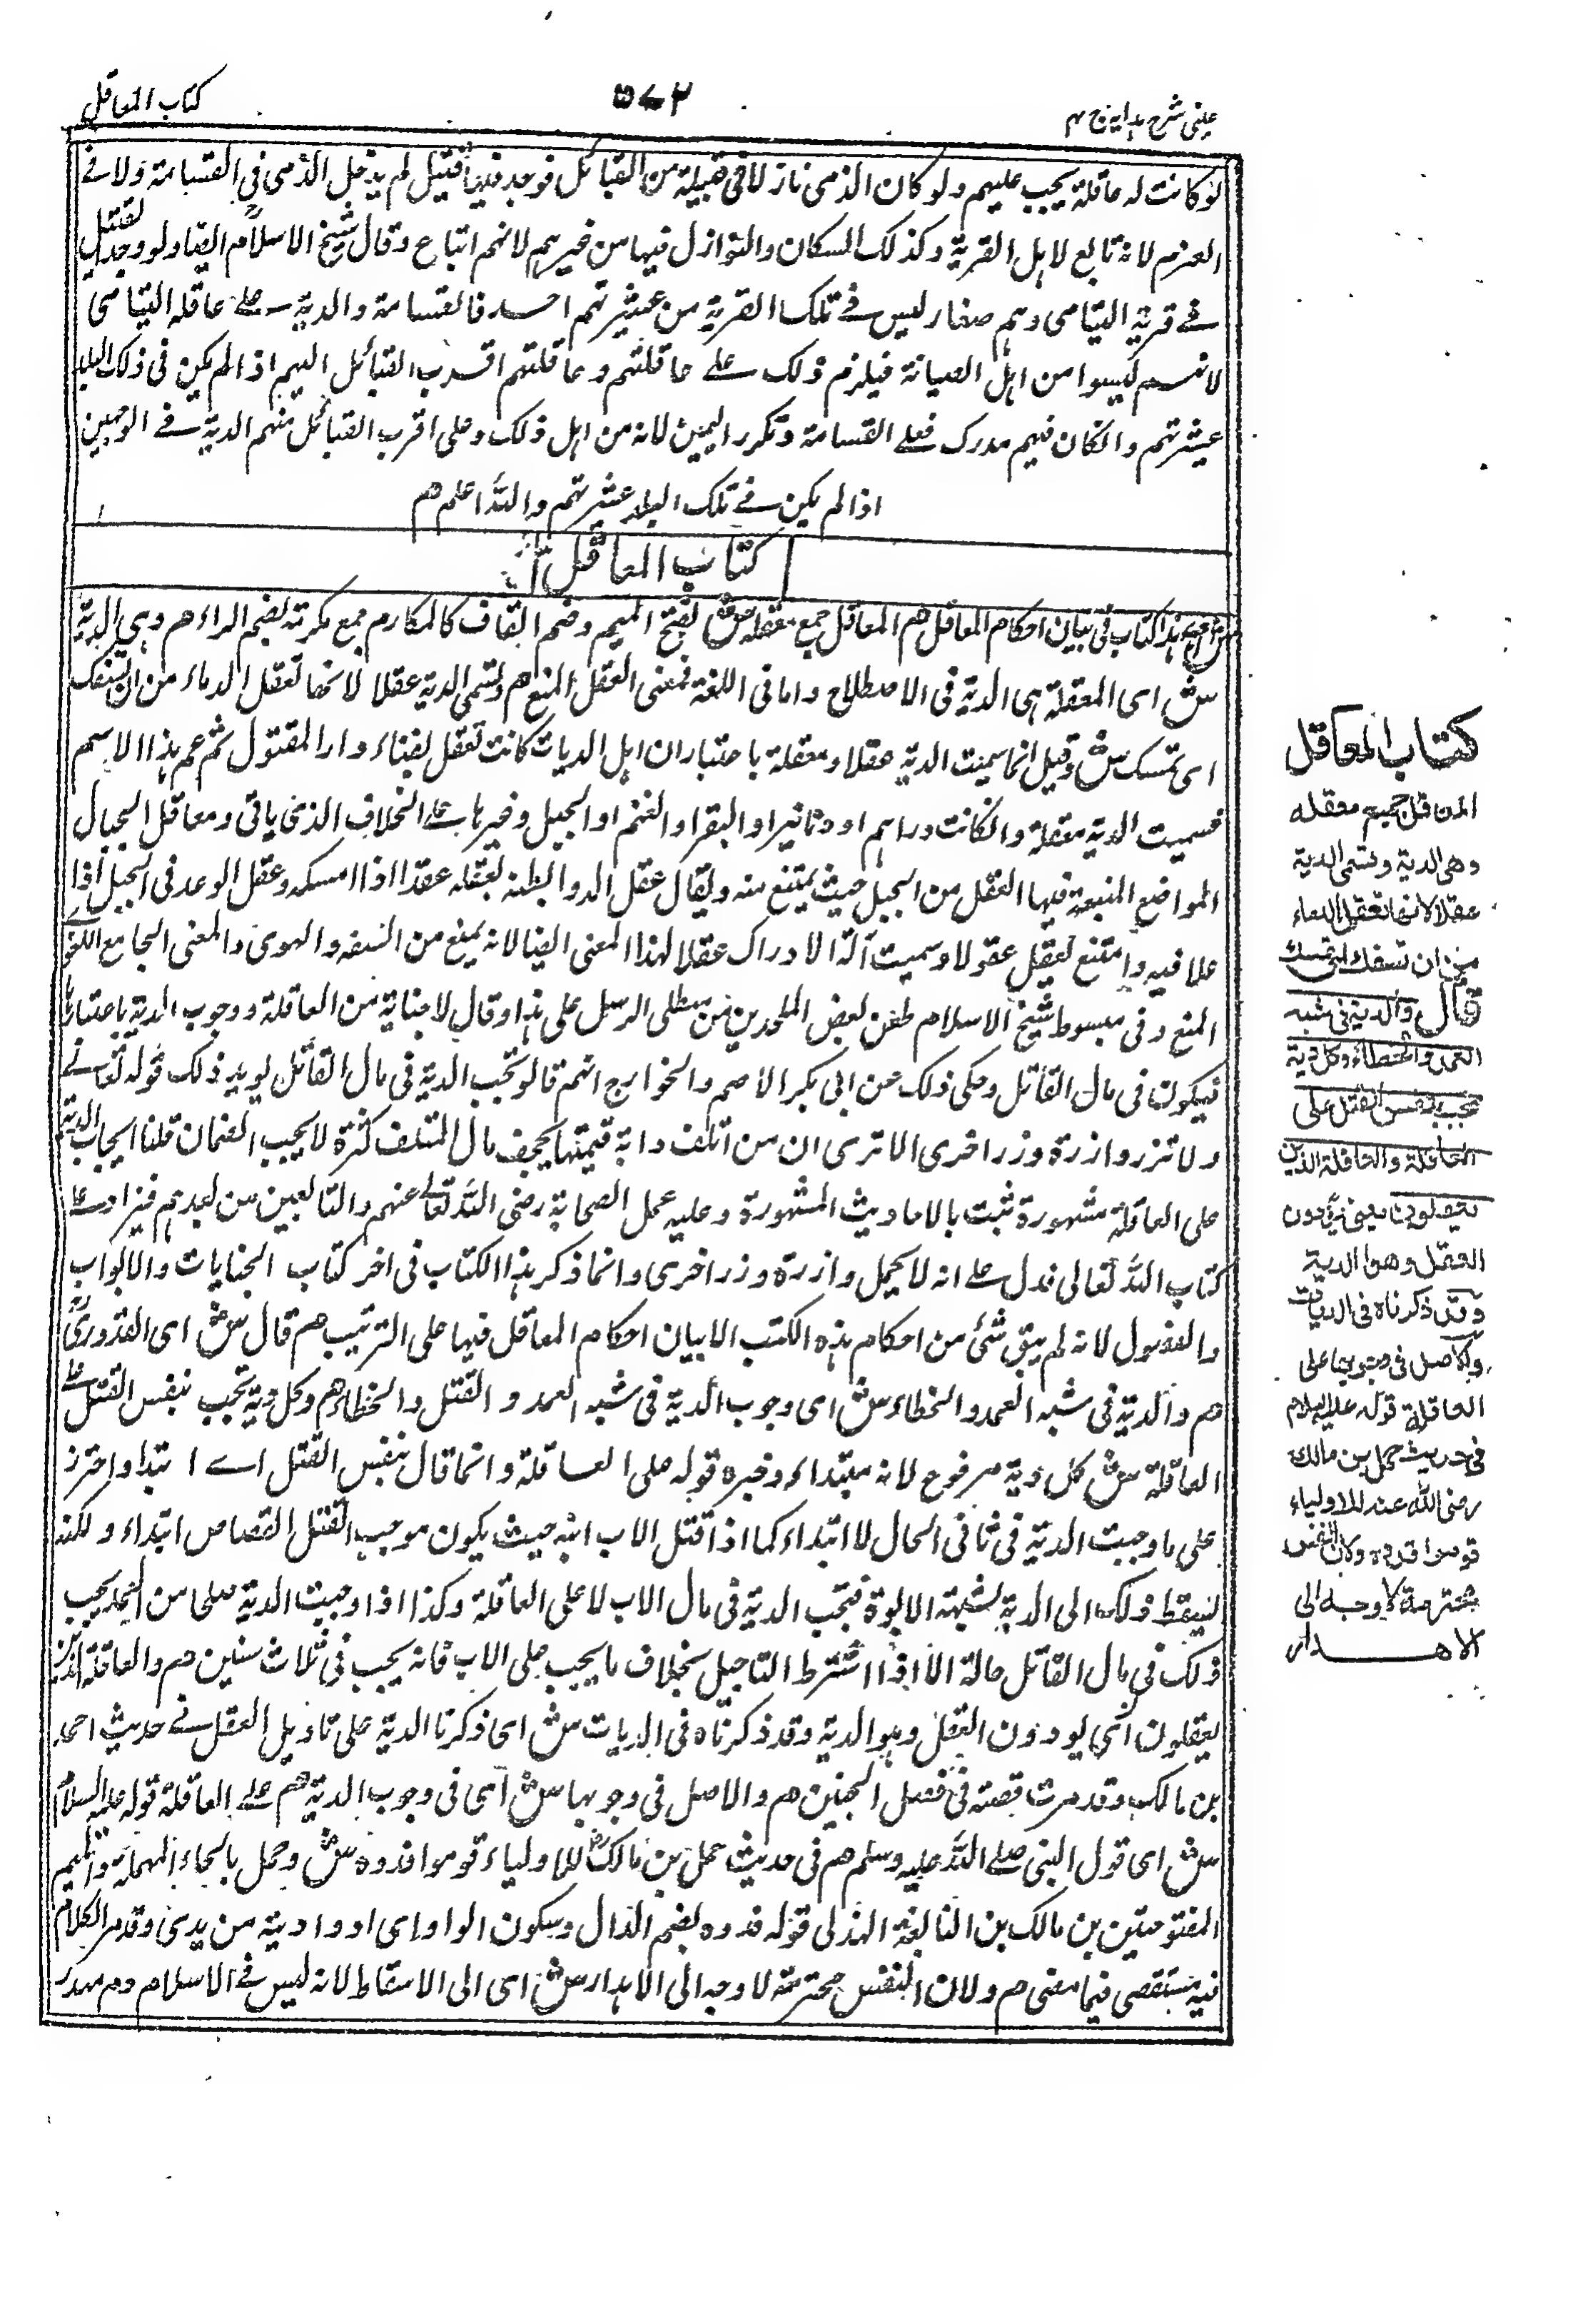 عینی شرح ہدایہ ج ۴
۵۷۲
کتاب المعاقل
لو كانت له عاقلة يجب عليهم ولو كان الذمى نازلا فى قبيلة من القبائل فوجد فيها قتيل لم يدخل الذمى فى القسامة ولا فے
الغرم لانه تابع لاهل القرية وكذلك السكان والنوازل فيها من غيرهم لانهم اتباع وقال شيخ الاسلام ايضا ولو وجد القتيل
فے قرية اليتامى وهم صغار ليس فے تلك القرية من عشيرتهم احد فالقسامة والدية علے عاقلة اليتامى
لانهم ليسوا من اهل الصيانة فيلزم ذلك علے عاقلتهم وعاقلتهم اقرب القبائل اليهم اذا لم يكن فى ذلك البلد
عشيرتهم وان كان فيهم مدرك فعليه القسامة وتكرر اليمين لانه من اهل ذلك وعلى اقرب القبائل منهم الدية فے الوجهين
اذا لم يكن فے تلك البلد عشيرتهم والله اعلم هم
كتاب المعاقل
ش اى هذا كتاب فى بيان احكام المعاقل هم المعاقل جمع معقلة ش بفتح الميم وضم القاف كالمكارم جمع مكرمة بضم الراء هم وهى الدية
ش اى المعقلة هى الدية فى الاصطلاح واما فى اللغة فمعنى العقل المنع هم وتسمى الدية عقلا لانها تعقل الدماء من ان تسفك
اى تمسك ش وقيل انما سميت الدية عقلا ومعقلة باعتبار ان ابل الديات كانت تعقل بفناء دار المقتول ثم عم هذا الاسم
فسميت الدية معقلة وان كانت دراهم او دنانير او البقر او الغنم او الجبل وغيرها علے الخلاف الذى ياتى ومعاقل الجبال
المواضع المنيعة فيها العقل من الجبل حيث يمتنع منه ويقال عقل الدواء البطنه يعقله عقلا اذا امسكه وعقل الوعد فى الجبل اذا
علا فيه وامتنع يعقل عقولا وسميت آلة الادراك عقلا لهذا المعنى ايضا لانه يمنع من السفه والهوى والمعنى الجامع اللغوى
المنع وفى مبسوط شيخ الاسلام طعن بعض الملحدين من مبطلى الرسل على هذا وقال لا جناية من العاقلة ووجوب الدية باعتبارها
فيكون فى مال القاتل وحكى ذلك عن ابى بكر الاصم والخوارج انهم قالوا تجب الدية فى مال القاتل يويد ذلك قوله تعالے
ولا تزر وازرة وزر اخرى الا ترى ان من اتلف دابة قيمتها يجحف مال المتلف كثرة لا يجب الضمان قلنا ايجاب الدية
على العاقلة مشهورة ثبت بالاحاديث المشهورة وعليه عمل الصحابة رضى الله تعالے عنهم والتابعين من بعدهم فيزاد علے
كتاب الله تعالى فدل علے انه لا يحمل وازرة وزر اخرى وانما ذكر هذا الكتاب فى اخر كتاب الجنايات والابواب
والفصول لانه لم يبق شئ من احكام هذه الكتب الا بيان احكام المعاقل فيها على الترتيب هم قال ش اى القدورى
هم والدية فى شبه العمد والخطاء ش اى وجوب الدية فى شبه العمد و القتل والخطاء هم وكل دية تجب بنفس القتل علے
العاقلة ش كل دية مرفوع لانه مبتداء وخبره قوله على العاقلة وانما قال بنفس القتل اے ابتدا واحترز
على ما وجبت الدية فى ثانى الحال لا ابتداء كما اذا قتل الاب ابنه حيث يكون موجب القتل القصاص ابتداء ولكنه
يسقط ذلك الى الدية لشبهة الابوة فتجب الدية فى مال الاب لا على العاقلة وكذا اذا وجبت الدية صلحا من العمد يجب
ذلك فى مال القاتل حالة الا اذا اشترط التاجيل بخلاف ما يجب على الاب فانه يجب فى ثلاث سنين هم والعاقلة الذين
يعقلون اى يودون العقل وهو الدية وقد ذكرناه فى الديات ش اى ذكرنا الدية على تاويل العقل فے حديث احمد
بن مالك وقد مرت قصته فى فصل الجنين هم والاصل فى وجوبها ش اى فى وجوب الدية هم علے العاقلة قوله عليه السلام
ش اى قول النبى صلے الله عليه وسلم هم فى حديث حمل بن مالك للاولياء قوموا فدوه ش وحمل بالحاء المهملة والميم
المفتوحتين بن مالك بن النابغة الهذلى قوله فدوه بضم الدال وسكون الواو اى ادوا دية من يدى وقد مر الكلام
فيه مستقصى فيما مضى هم ولان النفس محترمة لا وجه الى الاهدار ش اى الى الاسقاط لانه ليس فے الاسلام دم مهدر
كتاب المعاقل
المعاقل جمع معقله
وهى الدية وتسمى الدية
عقلا لانها تعقل الدماء
من ان تسفك اى تمسك
قال والدية فى شبه
العمد والخطاء وكل دية
تجب بنفس القتل على
العاقلة والعاقلة الذين
يعقلون يعنى يؤدون
العقل وهو الدية
وقد ذكرناه فى الديات
والاصل فى وجوبها على
العاقلة قوله عليه السلام
فى حديث حمل بن مالك
رضى الله عنه للاولياء
قوموا فدوه ولان النفس
محترمة لا وجه الى
الاهدار